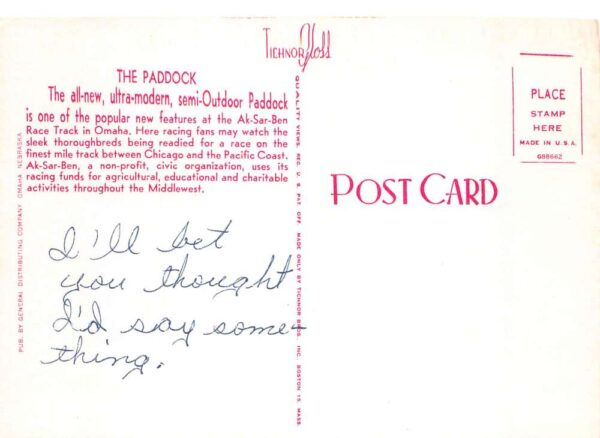 TICHNOR Gloss
THE PADDOCK
The all-new, ultra-modern, semi-Outdoor Paddock
is one of the popular new features at the Ak-Sar-Ben
Race Track in Omaha. Here racing fans may watch the
sleek thoroughbreds being readied for a race on the
finest mile track between Chicago and the Pacific Coast.
Ak-Sar-Ben, a non-profit, civic organization, uses its
racing funds for agricultural, educational and charitable
activities throughout the Middlewest.
I'll bet
you thought
I'd say some-
thing.
PUB. BY GENERAL DISTRIBUTING COMPANY, OMAHA, NEBRASKA
QUALITY VIEWS, REG. U. S. PAT. OFF. MADE ONLY BY TICHNOR BROS., INC., BOSTON 15, MASS.
POST CARD
PLACE
STAMP
HERE
MADE IN U.S.A.
G88662